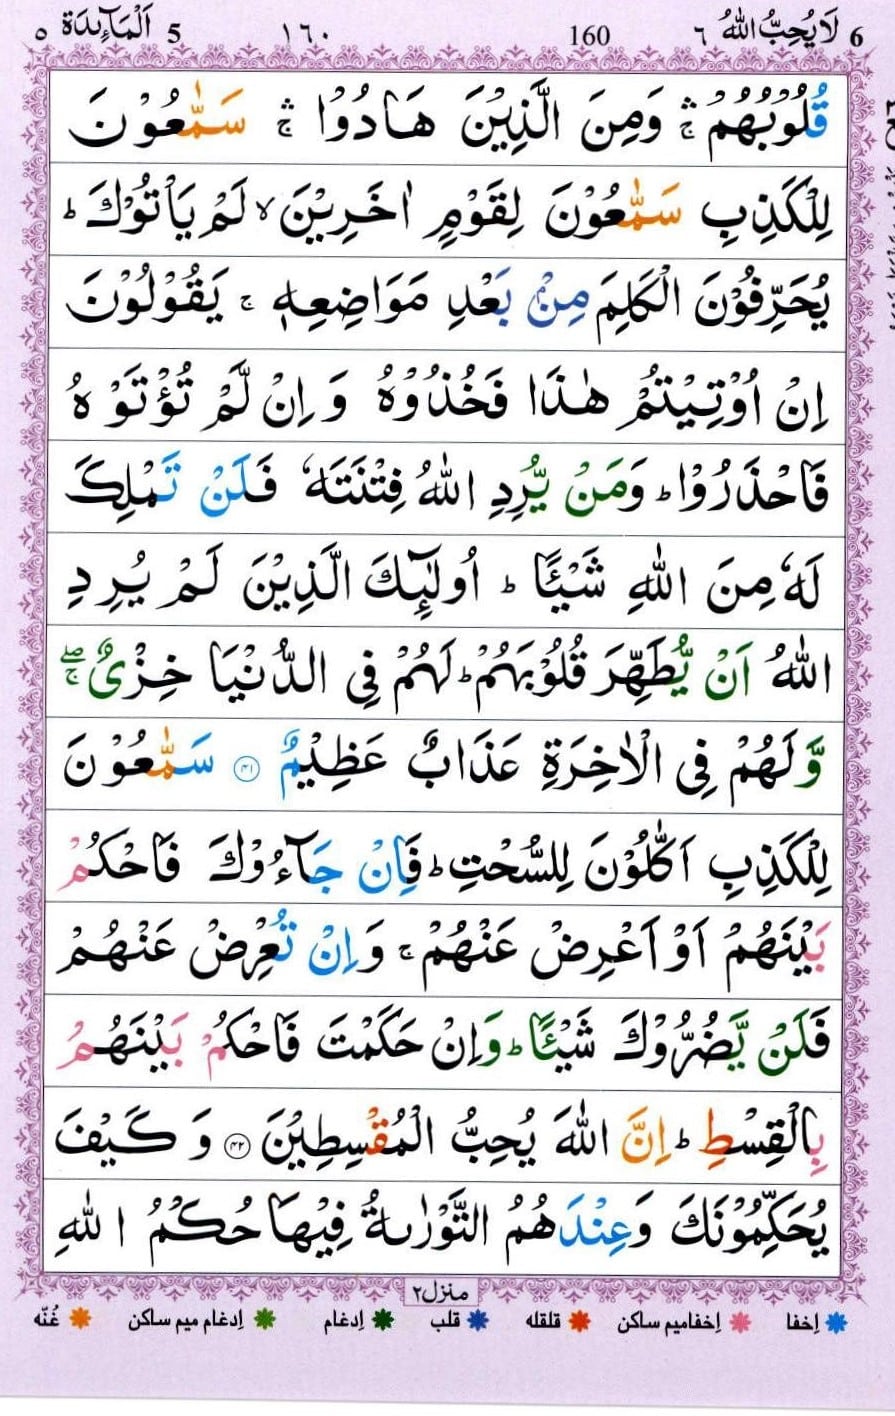 6 لَا يُحِبُّ اللّٰهُ ٦ 160 ١٦٠ 5 اَلْمَآئِدَة ٥
قُلُوْبُهُمْ ۛۚ وَمِنَ الَّذِيْنَ هَادُوْا ۛۚ سَمّٰعُوْنَ
لِلْكَذِبِ سَمّٰعُوْنَ لِقَوْمٍ اٰخَرِيْنَ ۙ لَمْ يَاْتُوْكَ ؕ
يُحَرِّفُوْنَ الْكَلِمَ مِنْۢ بَعْدِ مَوَاضِعِهٖ ۚ يَقُوْلُوْنَ
اِنْ اُوْتِيْتُمْ هٰذَا فَخُذُوْهُ وَاِنْ لَّمْ تُؤْتَوْهُ
فَاحْذَرُوْا ؕ وَمَنْ يُّرِدِ اللّٰهُ فِتْنَتَهٗ فَلَنْ تَمْلِكَ
لَهٗ مِنَ اللّٰهِ شَيْـًٔا ؕ اُولٰٓئِكَ الَّذِيْنَ لَمْ يُرِدِ
اللّٰهُ اَنْ يُّطَهِّرَ قُلُوْبَهُمْ ؕ لَهُمْ فِى الدُّنْيَا خِزْىٌ ۖۚ
وَّلَهُمْ فِى الْاٰخِرَةِ عَذَابٌ عَظِيْمٌ ﴿۴۱﴾ سَمّٰعُوْنَ
لِلْكَذِبِ اَكّٰلُوْنَ لِلسُّحْتِ ؕ فَاِنْ جَآءُوْكَ فَاحْكُمْ
بَيْنَهُمْ اَوْ اَعْرِضْ عَنْهُمْ ۚ وَاِنْ تُعْرِضْ عَنْهُمْ
فَلَنْ يَّضُرُّوْكَ شَيْـًٔا ؕ وَاِنْ حَكَمْتَ فَاحْكُمْ بَيْنَهُمْ
بِالْقِسْطِ ؕ اِنَّ اللّٰهَ يُحِبُّ الْمُقْسِطِيْنَ ﴿۴۲﴾ وَكَيْفَ
يُحَكِّمُوْنَكَ وَعِنْدَهُمُ التَّوْرٰىةُ فِيْهَا حُكْمُ اللّٰهِ
منزل۲
اِخفا اِخفامیم ساکن قلقله قلب اِدغام اِدغام میم ساکن غُنّه